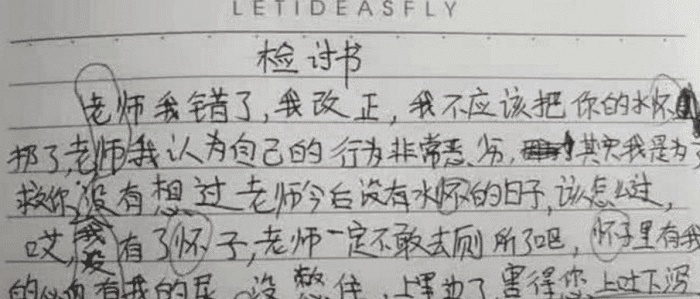 LETIDEASFLY
检讨书
老师我错了,我改正,我不应该把你的水怀
扔了,老师我认为自己的行为非常恶劣,其实我是为了
救你,没有想过老师今后没有水怀的日子,该怎么过,
哎,我没有了怀子,老师一定不敢去厕所了吧,怀子里有我
的 有我的尿 没憋住,上里边了,害得您上吐下泻